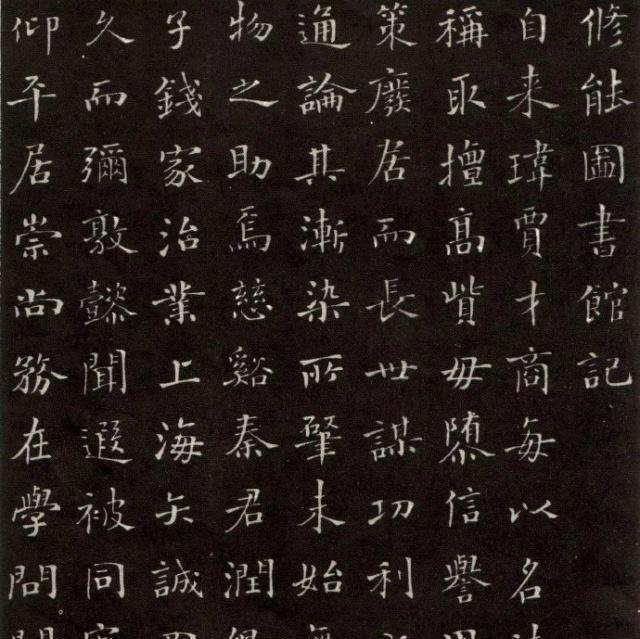 修能圖書館記
自来瑋賈才商每以名
稱取擅高貲毋隳信譽
策廢居而長世謀功利
通論其漸染所肇未始
物之助焉慈谿秦君潤
子錢家治業上海矢誠
久而彌敦懿聞遐被同
仰平居崇尚務在學問